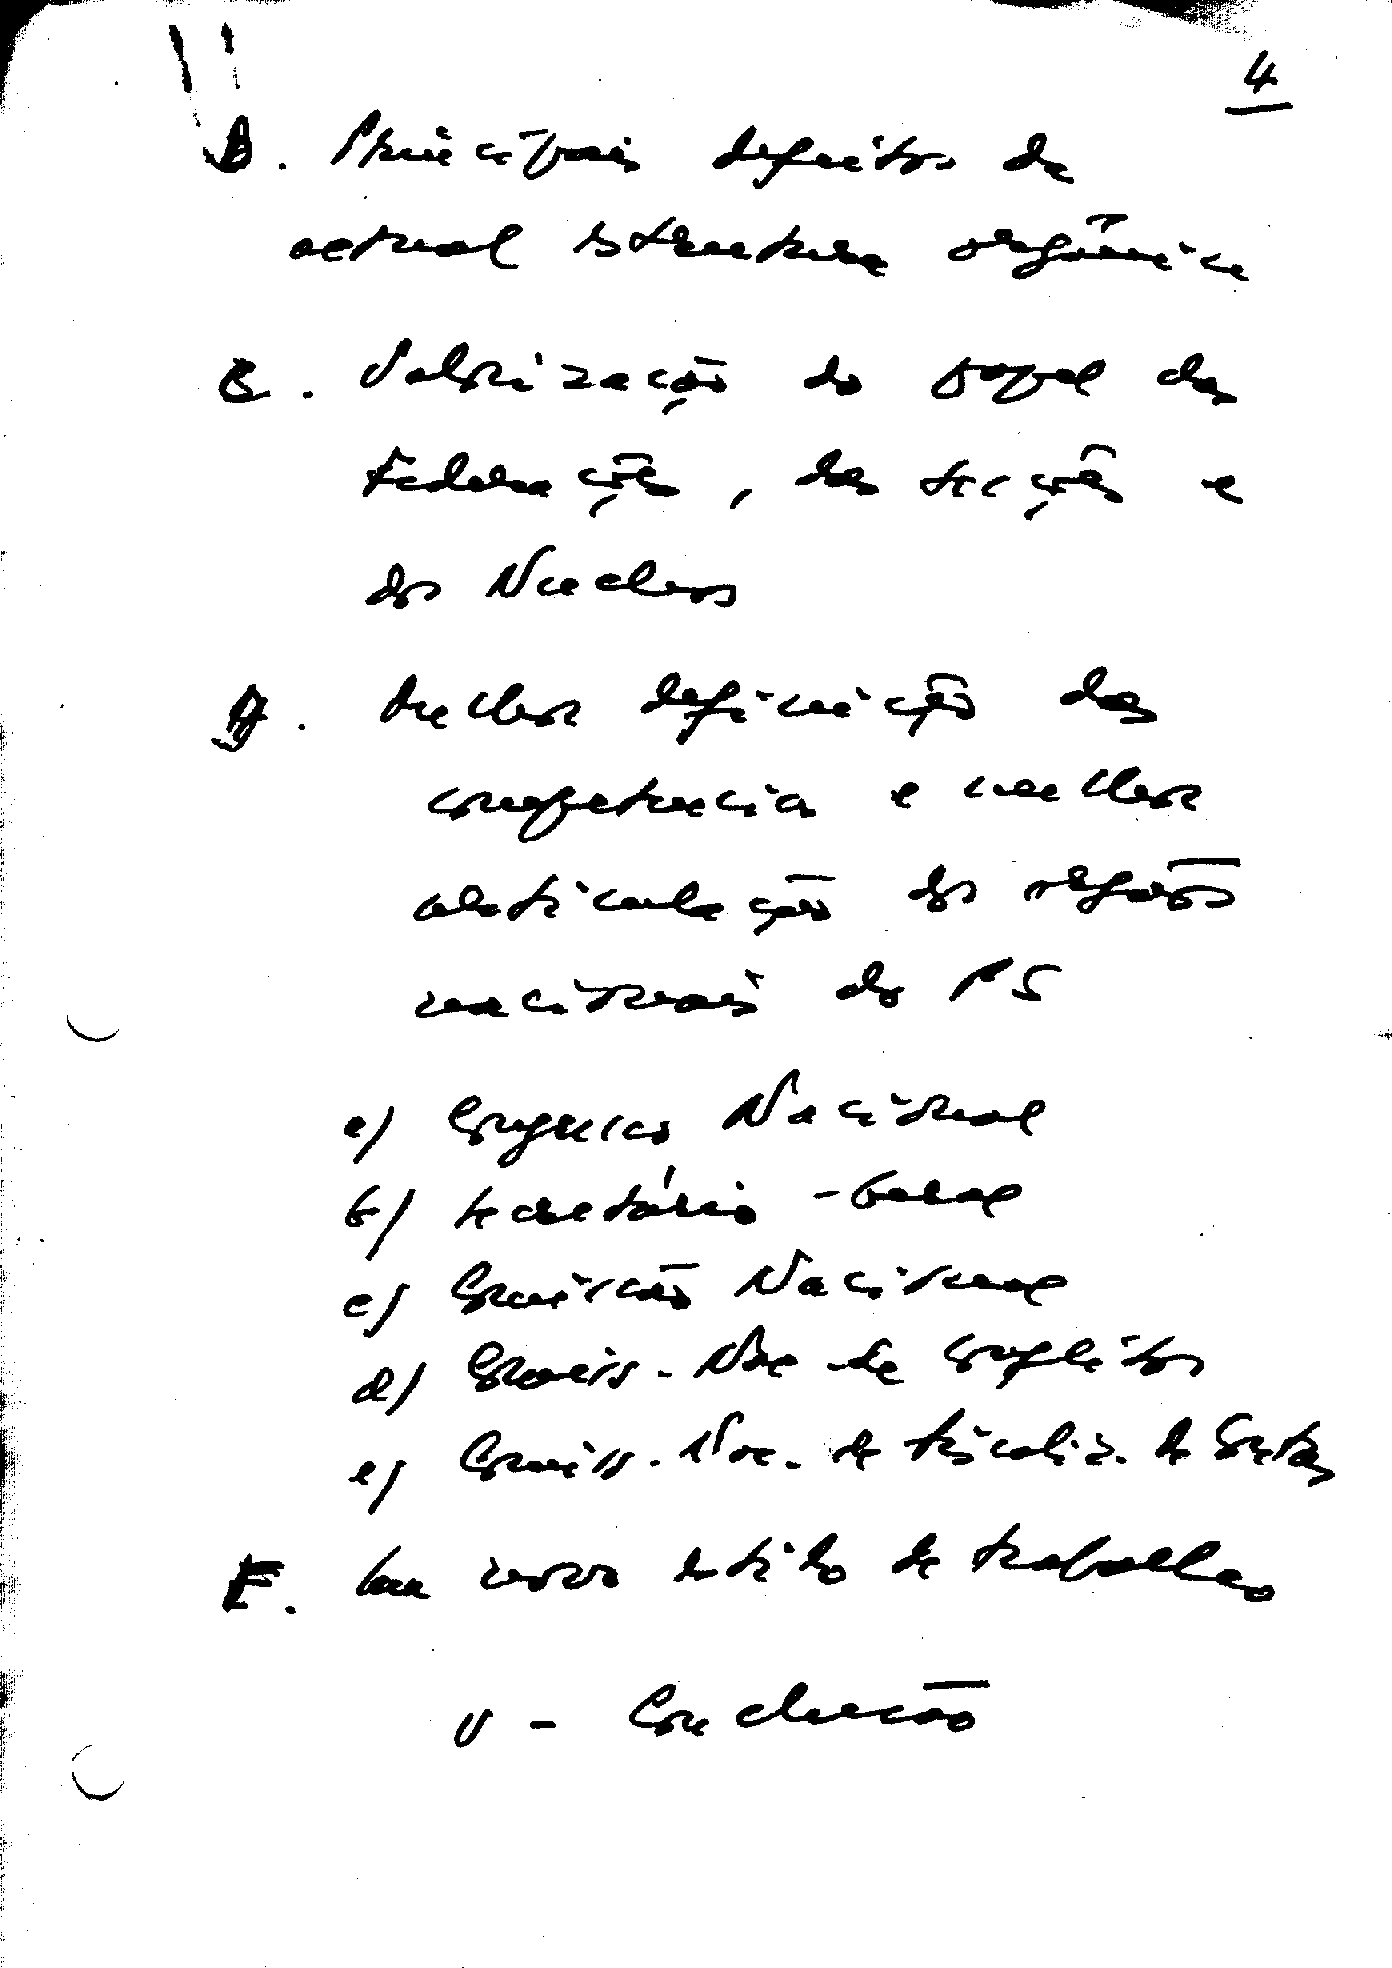 4
B. Principais defeitos da
actual estrutura orgânica
C. Valorização do papel das
Federações, das Secções e
dos Núcleos
D. Melhor definição das
competência e melhor
articulação dos orgãos
nacionais do PS
a) Congresso Nacional
b) Secretário-Geral
c) Comissão Nacional
d) Comiss. Nac. de Conflitos
e) Comiss. Nac. de Fiscaliz. de Contas
F. Um novo estilo de trabalho
V - Conclusão